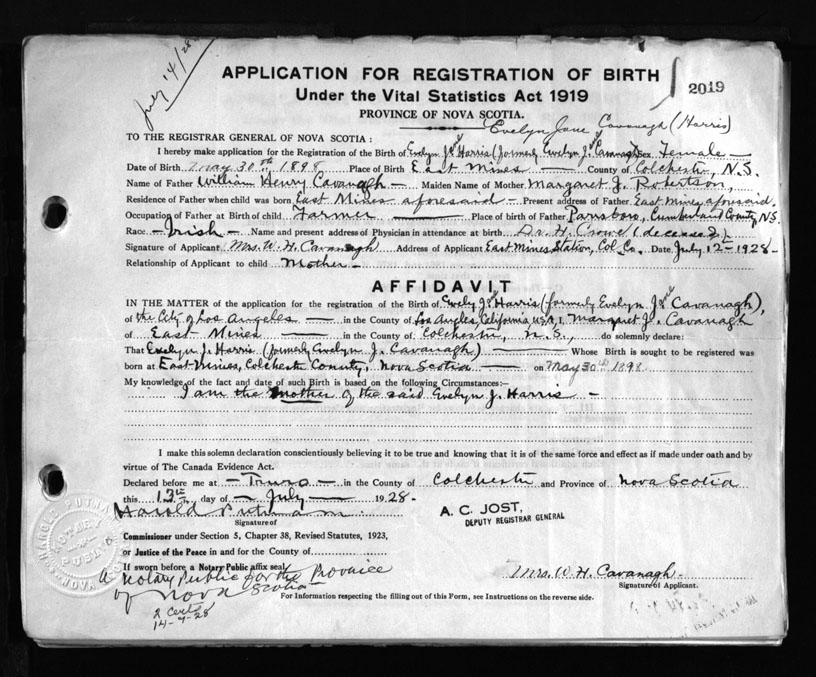 July 14/28
APPLICATION FOR REGISTRATION OF BIRTH
Under the Vital Statistics Act 1919
2019
PROVINCE OF NOVA SCOTIA.
Evelyn Jane Cavanagh (Harris)
TO THE REGISTRAR GENERAL OF NOVA SCOTIA :
I hereby make application for the Registration of the Birth of Evelyn J. Harris (formerly Evelyn J. Cavanagh) Sex Female —
Date of Birth May 30th 1898 Place of Birth East Mines — County of Colchester, N.S.
Name of Father William Henry Cavanagh — Maiden Name of Mother Margaret J. Robertson,
Residence of Father when child was born East Mines aforesaid — Present address of Father East Mines aforesaid.
Occupation of Father at Birth of child Farmer — Place of birth of Father Parrsboro, Cumberland County, N.S.
Race — Irish — Name and present address of Physician in attendance at birth Dr. H. Crowe (deceased).
Signature of Applicant Mrs. W. H. Cavanagh Address of Applicant East Mines Station, Col. Co. Date July 12th 1928 -
Relationship of Applicant to child Mother —
AFFIDAVIT
IN THE MATTER of the application for the registration of the Birth of Evelyn J. Harris (formerly Evelyn J. Cavanagh),
of the City of Los Angeles — in the County of Los Angeles, California, U.S.A. I, Margaret J. Cavanagh
of East Mines — in the County of Colchester, N.S., do solemnly declare:
That Evelyn J. Harris (formerly Evelyn J. Cavanagh) — Whose Birth is sought to be registered was
born at East Mines, Colchester County, Nova Scotia — on May 30th 1898.
My knowledge of the fact and date of such Birth is based on the following Circumstances:—
I am the mother of the said Evelyn J. Harris —
I make this solemn declaration conscientiously believing it to be true and knowing that it is of the same force and effect as if made under oath and by
virtue of The Canada Evidence Act.
Declared before me at — Truro — in the County of Colchester and Province of Nova Scotia
this 12th day of — July — 1928 -
Harold Putnam
A. C. JOST,
DEPUTY REGISTRAR GENERAL
Signature of
Commissioner under Section 5, Chapter 38, Revised Statutes, 1923,
or Justice of the Peace in and for the County of
If sworn before a Notary Public affix seal
A Notary Public for the Province
of Nova Scotia
Mrs. W. H. Cavanagh.
Signature of Applicant.
For Information respecting the filling out of this Form, see Instructions on the reverse side.
2 Certs
14-7-28
HAROLD PUTNAM
NOTARY
PUBLIC
NOVA SCOTIA